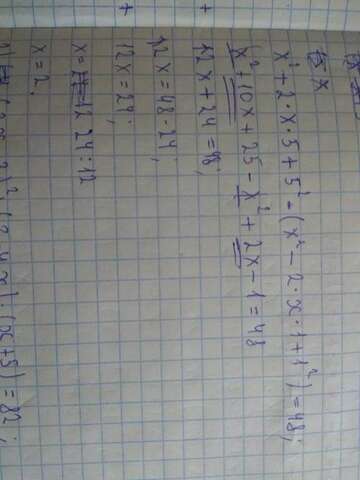 x² + 2 · x · 5 + 5² - (x² - 2 · x · 1 + 1²) = 48;
x² + 10x + 25 - x² + 2x - 1 = 48
12x + 24 = 48;
12x = 48 - 24;
12x = 24;
x = 24 : 12
x = 2.
(x + 5) = 82;